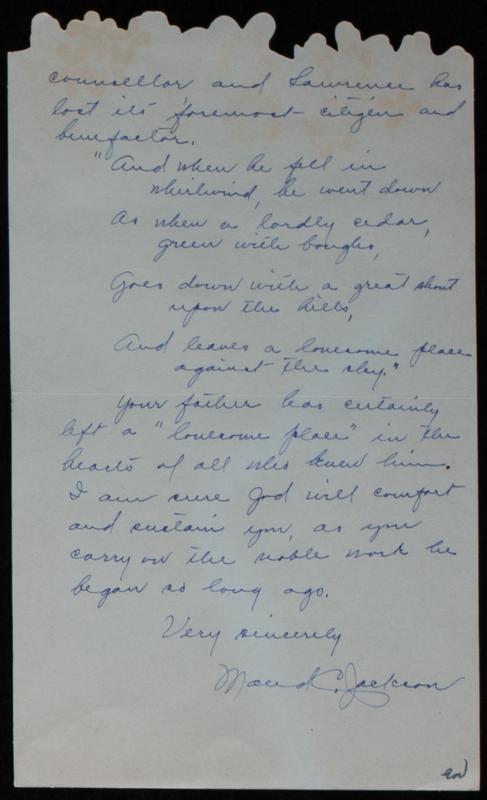 counsellor and Lawrence has
lost its foremost citizen and
benefactor.
"And when he fell in
whirlwind, he went down
As when a lordly cedar,
green with boughs,
Goes down with a great shout
upon the hills,
And leaves a lonesome place
against the sky."
Your father has certainly
left a "lonesome place" in the
hearts of all who knew him.
I am sure God will comfort
and sustain you, as you
carry on the noble work he
began so long ago.
Very sincerely
Maud C. Jackson